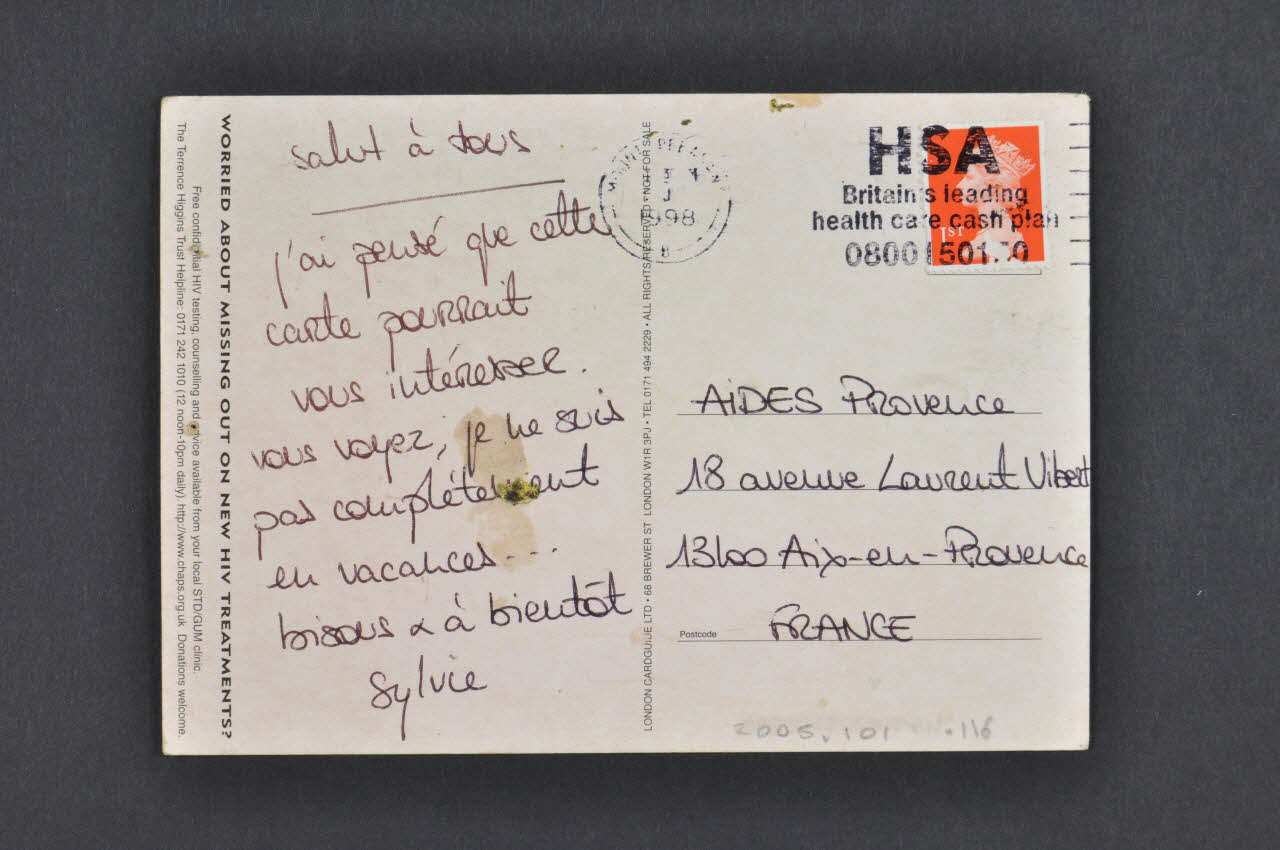 salut à tous
j'ai pensé que cette
carte pourrait
vous intéresser.
vous voyez, je ne suis
pas complétement
en vacances...
bisous & à bientôt
Sylvie
WORRIED ABOUT MISSING OUT ON NEW HIV TREATMENTS?
Free confidential HIV testing, counselling and advice available from your local STD/GUM clinic.
The Terrence Higgins Trust Helpline: 0171 242 1010 (12 noon-10pm daily). http://www.chaps.org.uk Donations welcome.
LONDON CARDGUIDE LTD • 68 BREWER ST LONDON W1R 3PJ • TEL 0171 494 2229 • ALL RIGHTS RESERVED • NOT FOR SALE
1998
HSA
Britain's leading
health care cash plan
0800
1ST
AIDES PROVENCE
18 avenue Laurent Vibert
13100 Aix-en-Provence
Postcode FRANCE
2005.101 .116